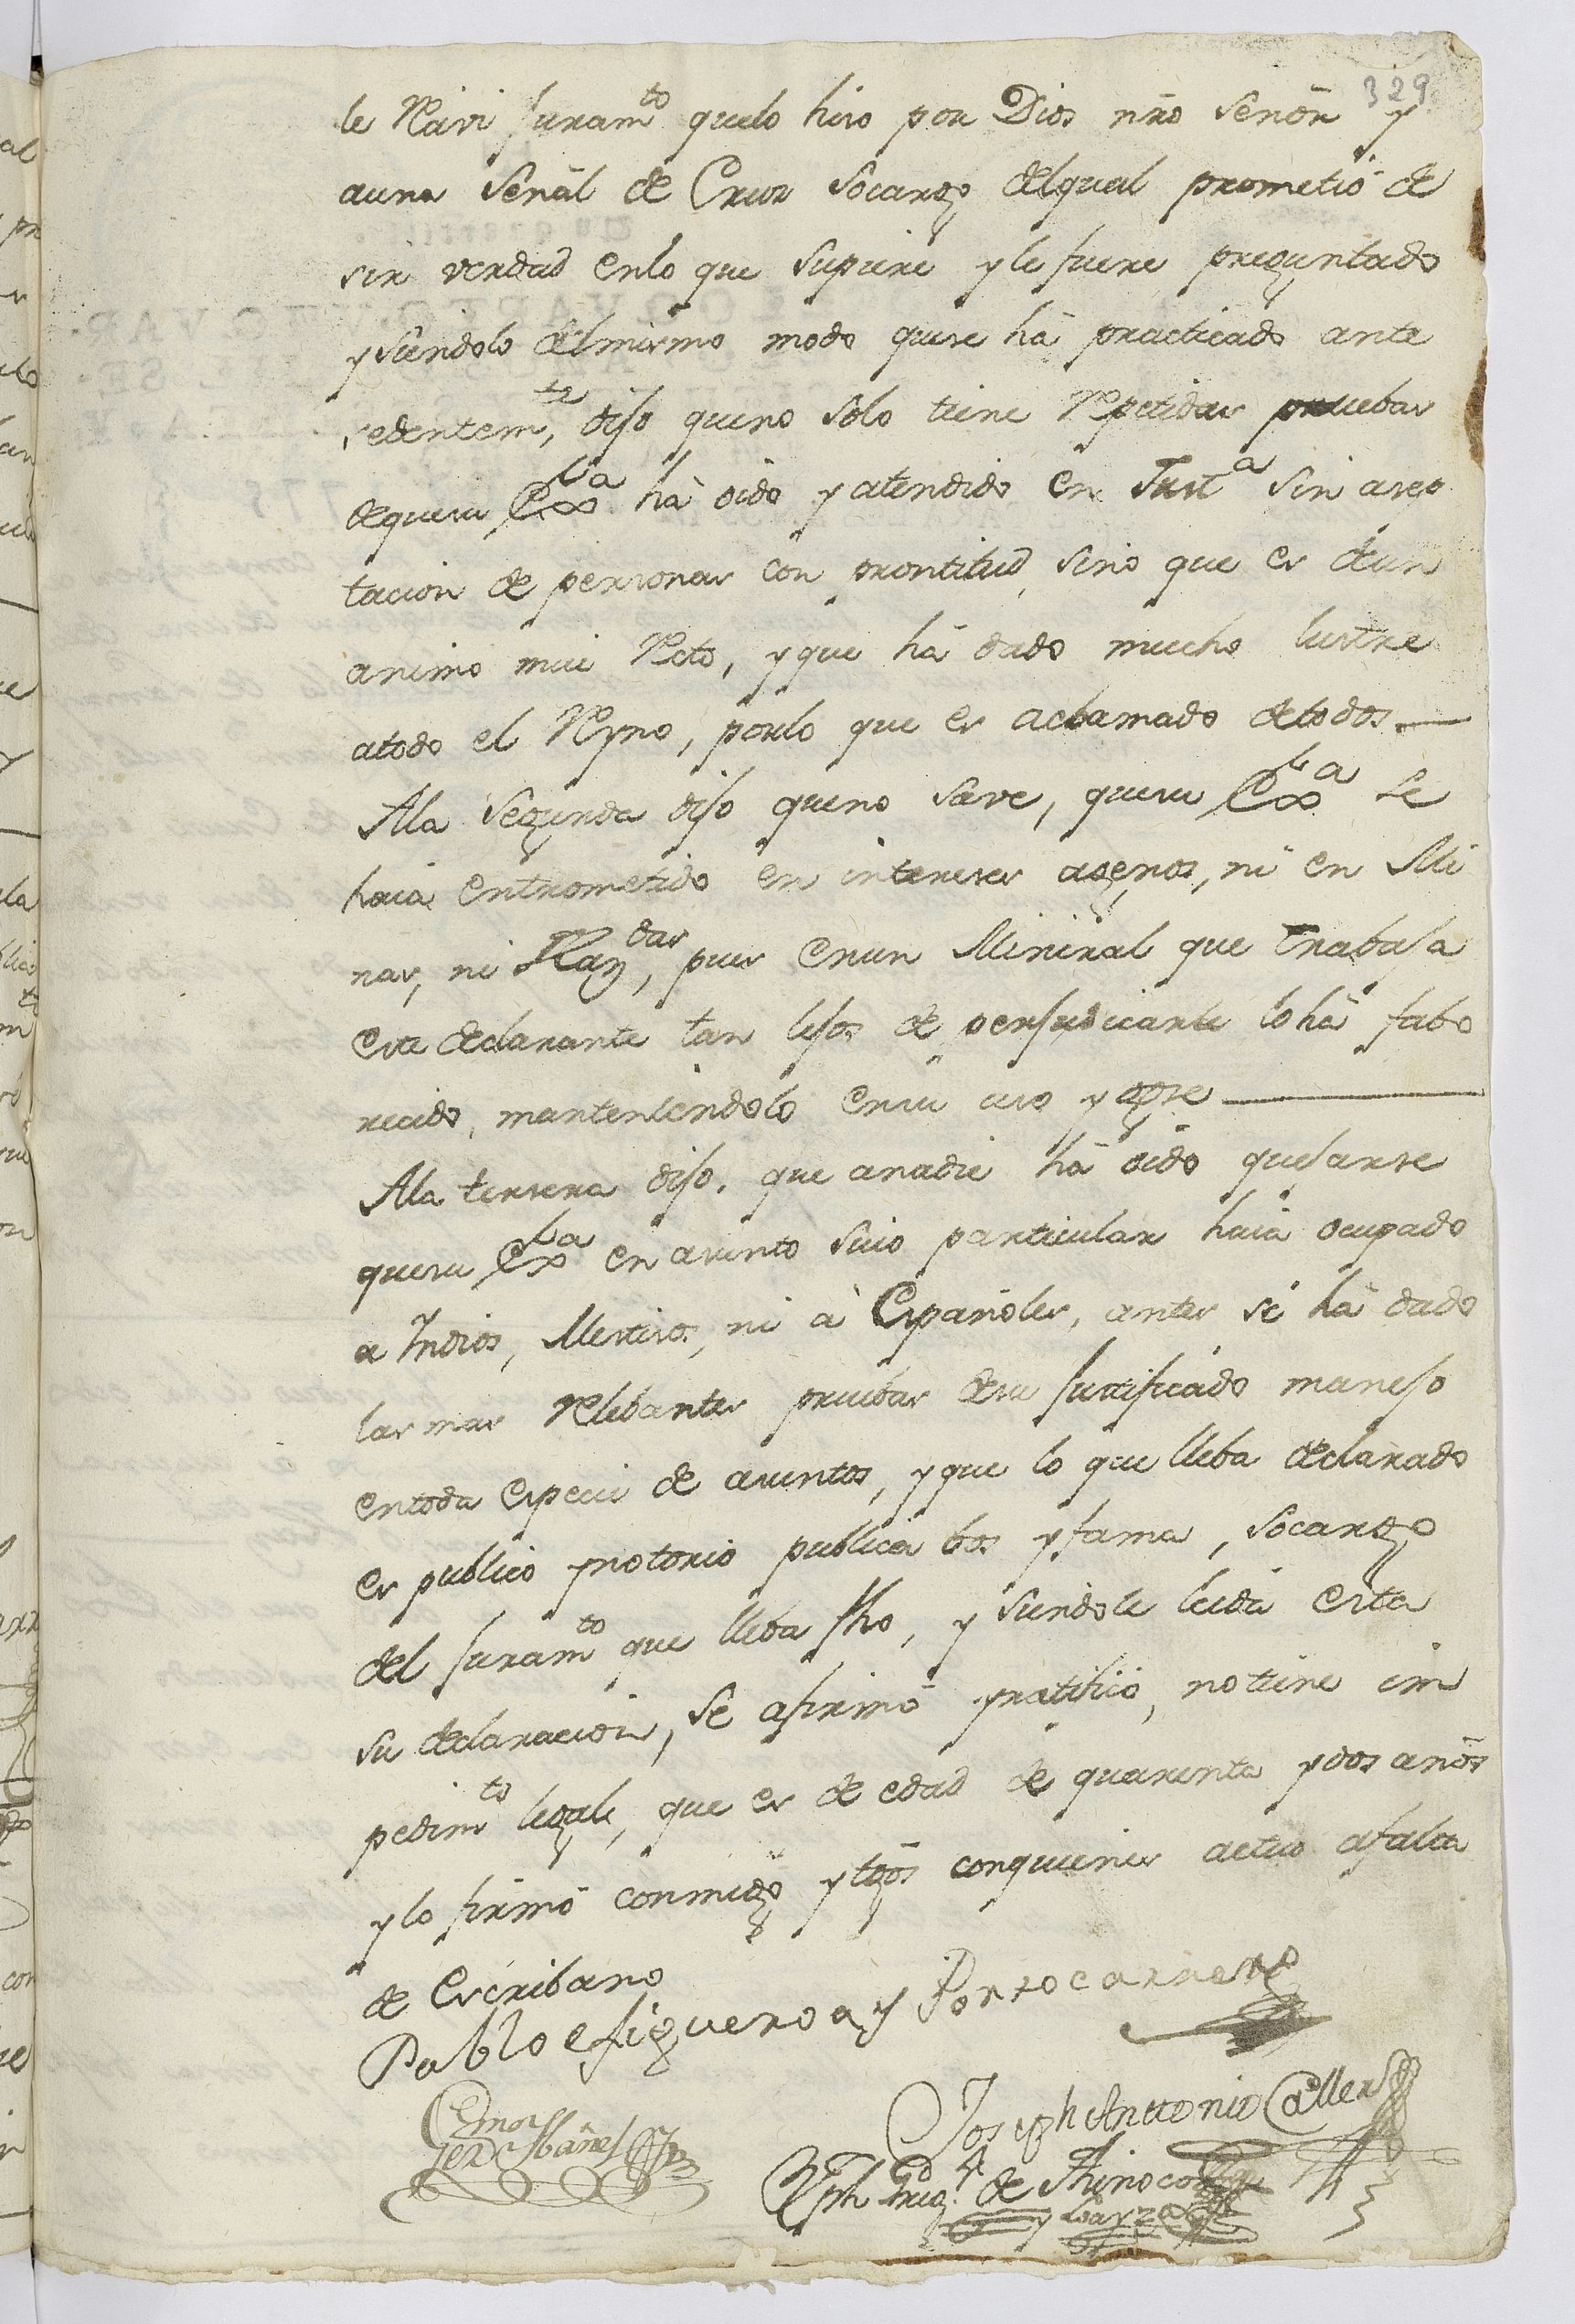 329
le Rẽivi Juram.to quelo hiso por Dios nr̃o señor y
auna señal de Cruz socargo delqual prometio de
sir verdad enlo que supiere yle fuere preguntado
y siendolo delmismo modo quese hà practicado ante
sedentem.te, dijo queno solo tiene repetidas pruebas
dequesu Ex.a hà oido y atendido en Just.a sin asep
tacion de personas con prontitud, sino que es deun
animo mui recto, yque hà dado mucho lustre
atodo el Reyno, porlo que es aclamado detodos.—
Ala segunda dijo queno save, quesu Ex.a se
haia entrometido en intereses agenos, ni en Mi
nas, ni Haz.das, pues enun Miniral que trabaja
este declarante tan lejos de perjudicarle lo hà fabo
recido, manteniendolo ensu uso y goze ———
Ala tersera dijo, que anadie hà oido quejarse
quesu Ex.a en asunto suio particular haia ocupado
a Indios, Mestisos, ni à Españoles, antes si hà dado
las mas relebantes pruebas desu justificado manejo
entoda especie de asuntos, yque lo que lleba declarado
es publico ynotorio publica bos yfama, socargo
del Juram.to que lleba fho, y siendole leida esta
su declaracion, se afirmó yratificó, notiene im
pedim.to legale, que es de edad de quarenta ydos años
ylo firmó conmigo ytgõs conquienes actuo afalta
de Escribano
Pablo efigueroa y Portocarrero
Joseph Anttonio Caller
Jph Greg.o de Thinoco
y Loayza